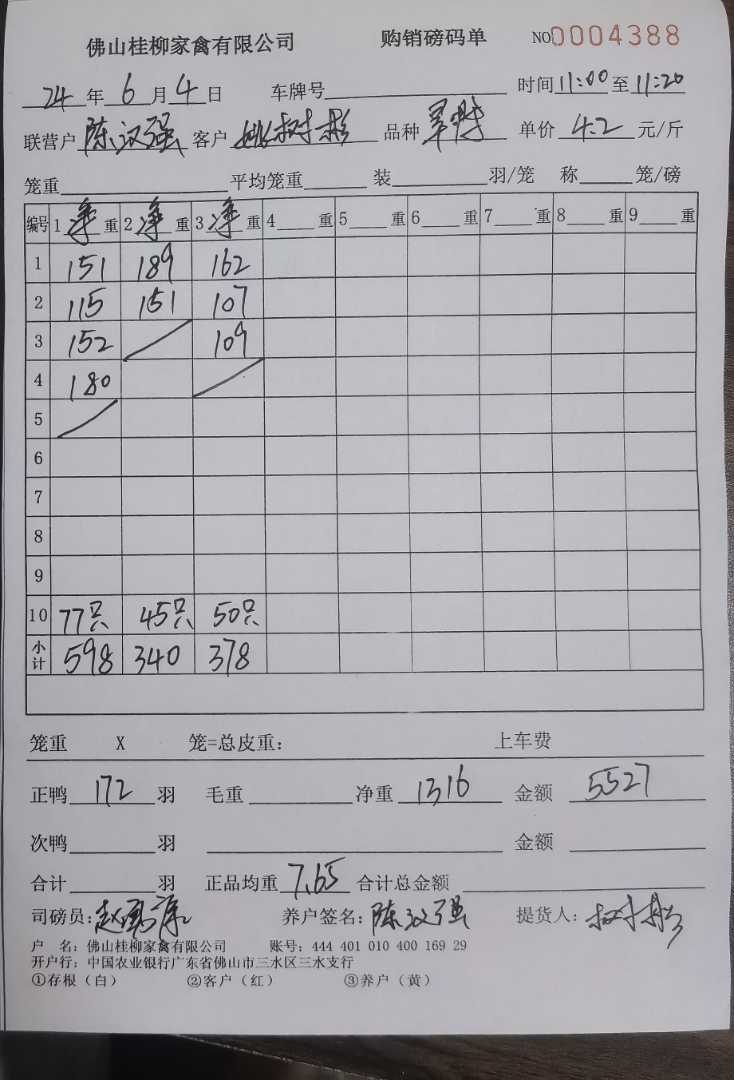 佛山桂柳家禽有限公司 购销磅码单 NO.0004388
24年6月4日 车牌号 时间11:00至11:20
联营户陈汉强 客户 树彬 品种 单价4.2元/斤
笼重 平均笼重 装 羽/笼 称 笼/磅
编号 1净重 2净重 3净重 4 重 5 重 6 重 7 重 8 重 9 重
1 151 189 162
2 115 151 107
3 152 109
4 180
5
6
7
8
9
10 77只 45只 50只
小计 598 340 378
笼重 X 笼=总皮重: 上车费
正鸭172羽 毛重 净重1316 金额5527
次鸭 羽 金额
合计 羽 正品均重7.65 合计总金额
司磅员: 养户签名:陈汉强 提货人:树彬
户 名:佛山桂柳家禽有限公司 账号:444 401 010 400 169 29
开户行:中国农业银行广东省佛山市三水区三水支行
①存根（白） ②客户（红） ③养户（黄）